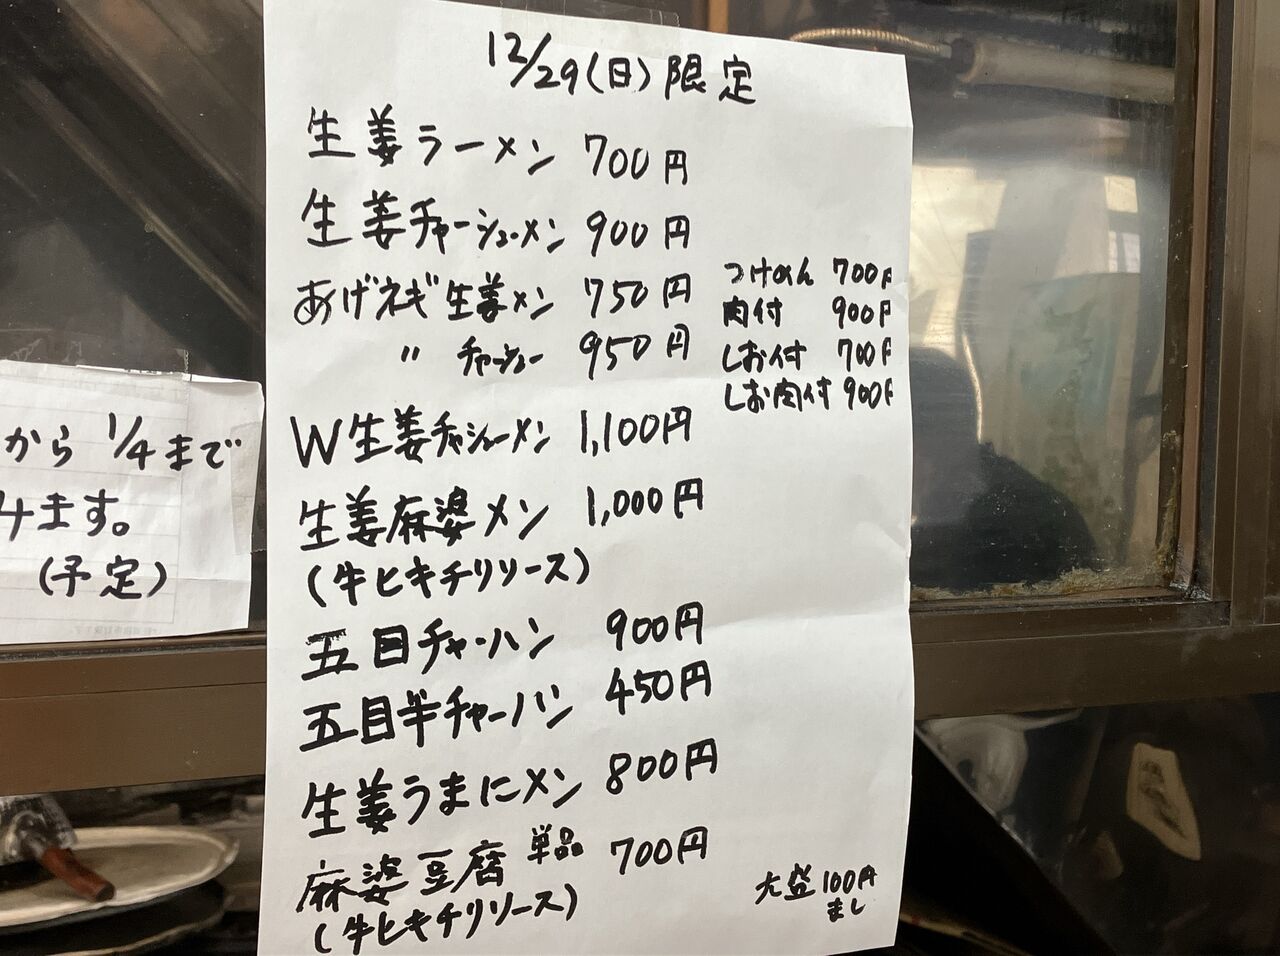 12/29(日)限定
生姜ラーメン 700円
生姜チャーシューメン 900円
あげネギ生姜メン 750円
〃 チャーシュー 950円
W生姜チャシューメン 1,100円
生姜麻婆メン 1,000円
(牛ヒキチリソース)
五目チャーハン 900円
五目半チャーハン 450円
生姜うまにメン 800円
麻婆豆腐 単品 700円
(牛ヒキチリソース)
つけめん 700円
肉付 900円
しお付 700円
しお肉付 900円
大盛100円
まし
から 1/4まで
みます。
(予定)